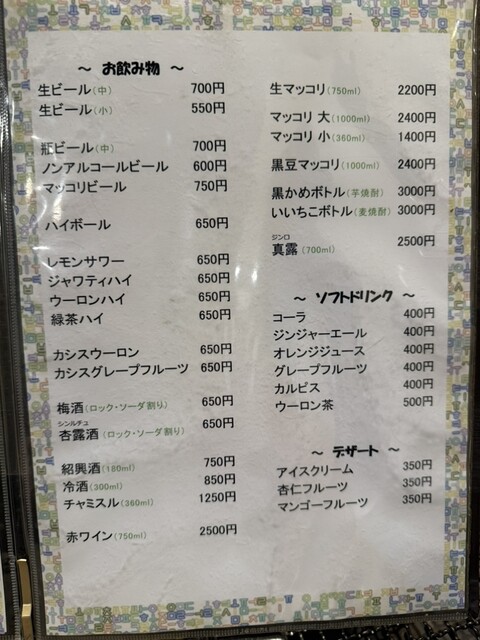 ～ お飲み物 ～
生ビール（中） 700円
生ビール（小） 550円
瓶ビール（中） 700円
ノンアルコールビール 600円
マッコリビール 750円
ハイボール 650円
レモンサワー 650円
ジャワティハイ 650円
ウーロンハイ 650円
緑茶ハイ 650円
カシスウーロン 650円
カシスグレープフルーツ 650円
梅酒（ロック・ソーダ割り） 650円
シンルチュ
杏露酒（ロック・ソーダ割り） 650円
紹興酒（180ml） 750円
冷酒（300ml） 850円
チャミスル（360ml） 1250円
赤ワイン（750ml） 2500円
生マッコリ（750ml） 2200円
マッコリ 大（1000ml） 2400円
マッコリ 小（360ml） 1400円
黒豆マッコリ（1000ml） 2400円
黒かめボトル（芋焼酎） 3000円
いいちこボトル（麦焼酎） 3000円
ジンロ
真露（700ml） 2500円
～ ソフトドリンク ～
コーラ 400円
ジンジャーエール 400円
オレンジジュース 400円
グレープフルーツ 400円
カルピス 400円
ウーロン茶 500円
～ デザート ～
アイスクリーム 350円
杏仁フルーツ 350円
マンゴーフルーツ 350円